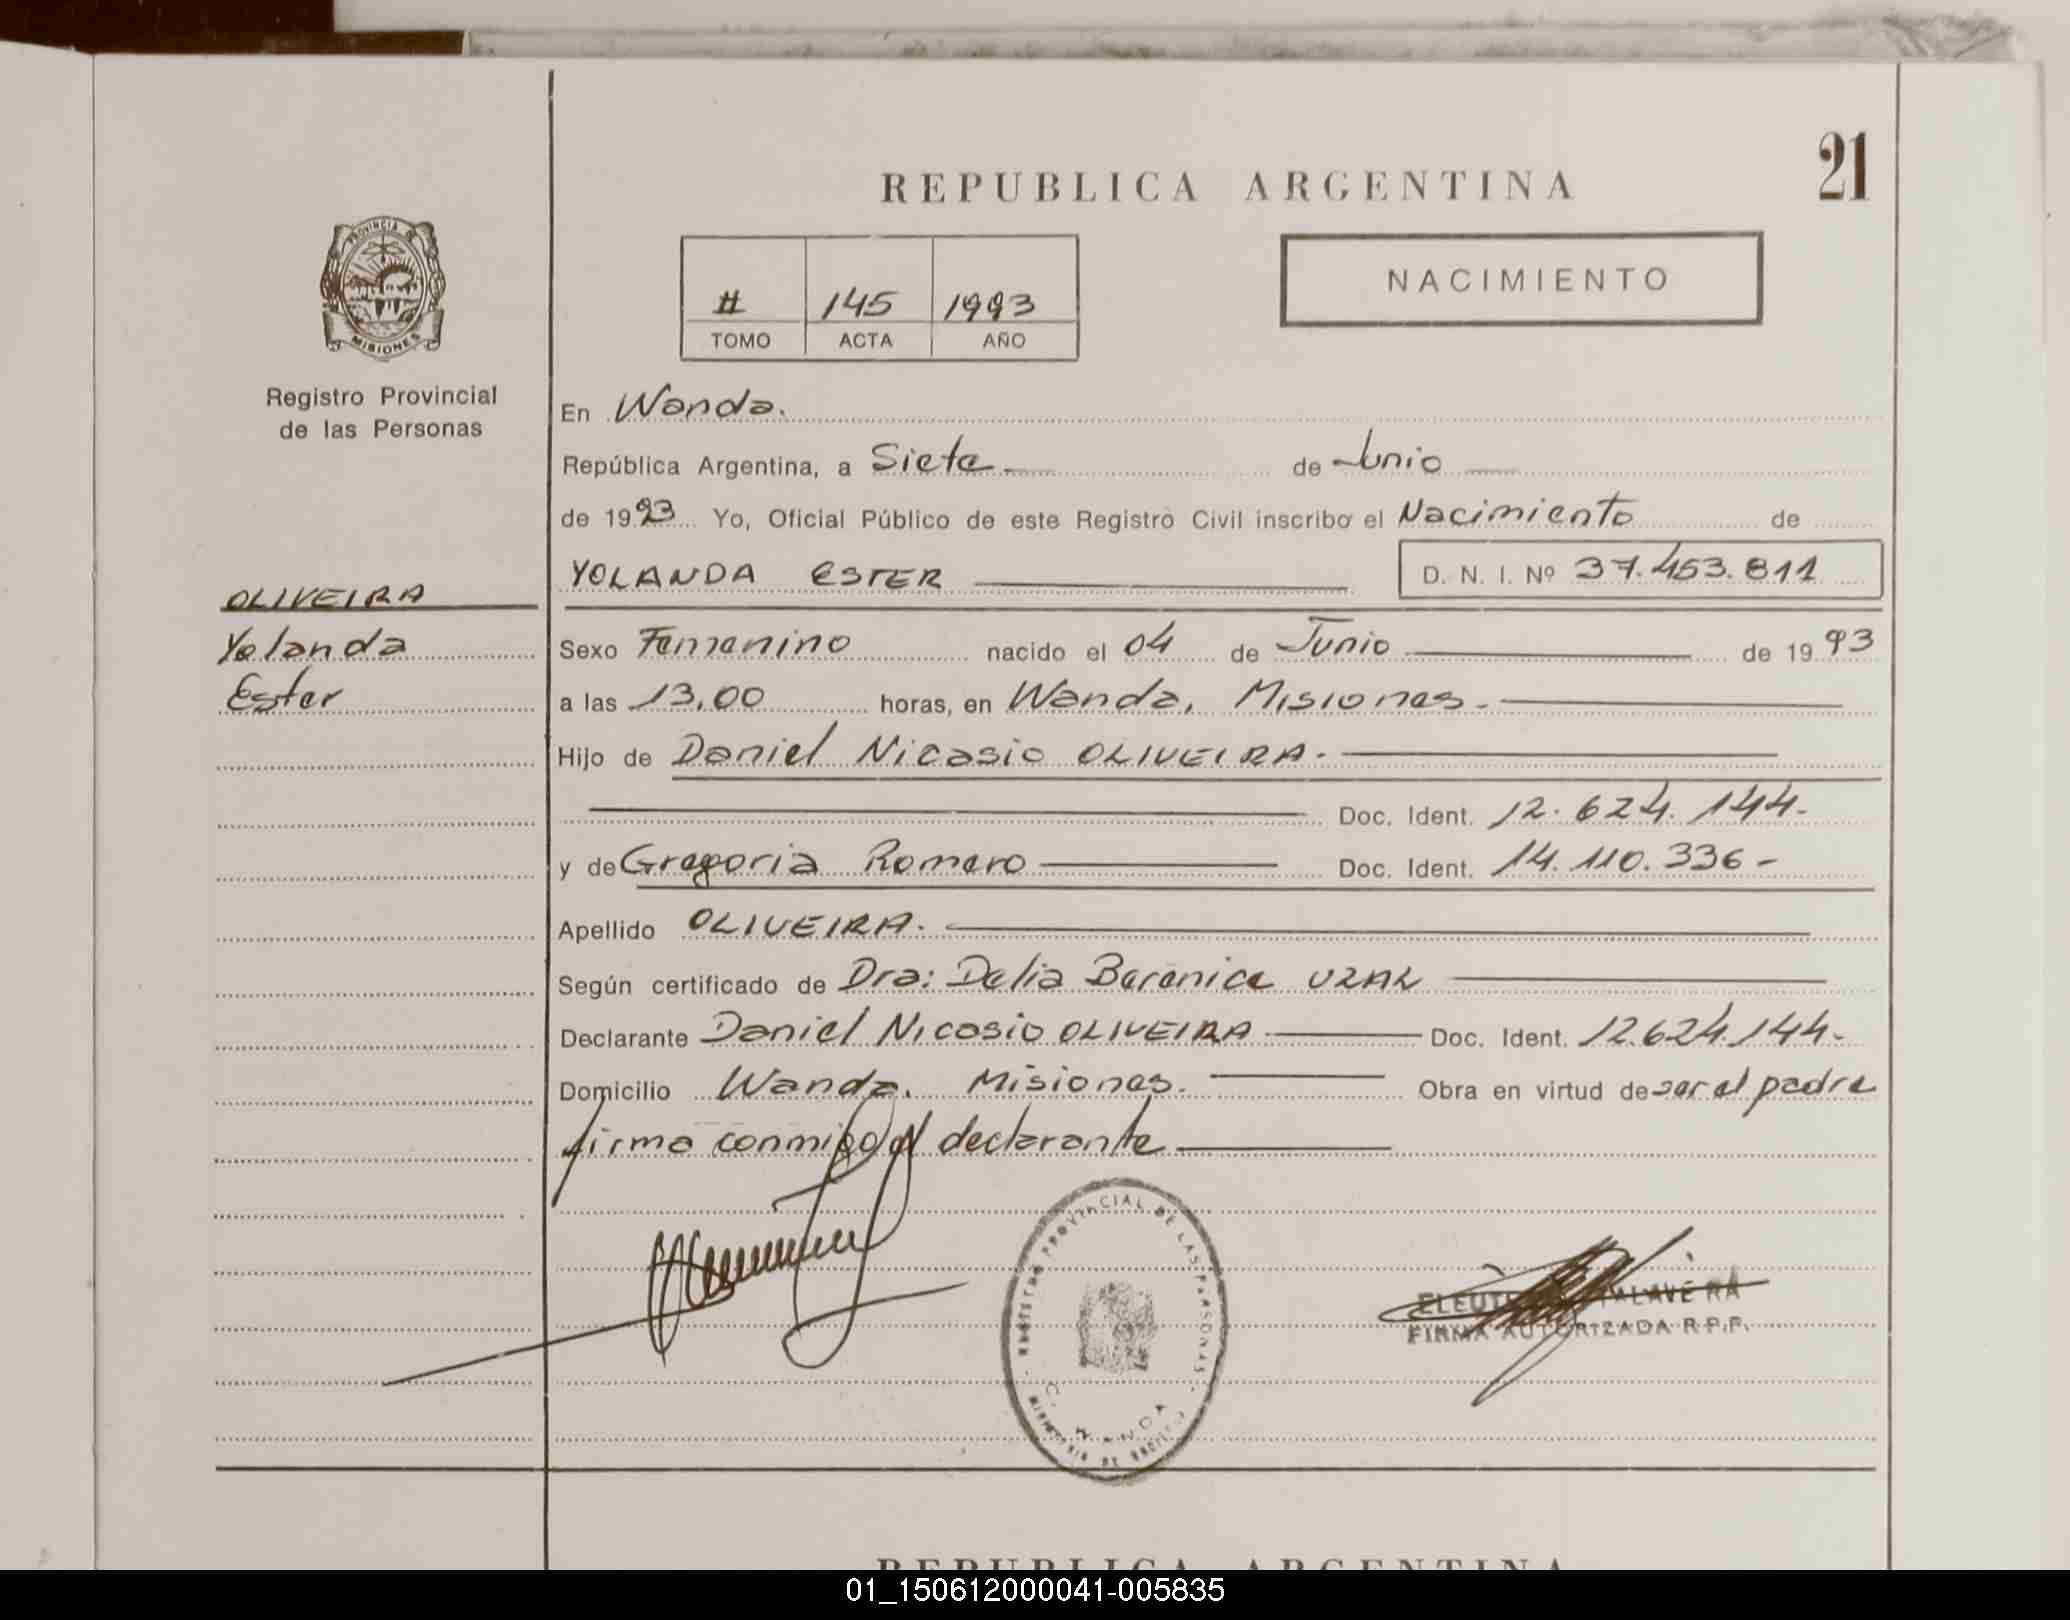 REPUBLICA ARGENTINA
21
PROVINCIA DE
MISIONES
Registro Provincial
de las Personas
# 145 1993
TOMO ACTA AÑO
NACIMIENTO
En Wanda.
República Argentina, a Siete de Junio
de 1993 Yo, Oficial Público de este Registro Civil inscribo el Nacimiento de
YOLANDA ESTER D. N. I. Nº 37.453.811
OLIVEIRA
Yolanda
Ester
Sexo Femenino nacido el 04 de Junio de 1993
a las 13,00 horas, en Wanda, Misiones.-
Hijo de Daniel Nicasio OLIVEIRA.-
Doc. Ident. 12.624.144-
y de Gregoria Romero Doc. Ident. 14.110.336-
Apellido OLIVEIRA.
Según certificado de Dra: Delia Berenice UZAL
Declarante Daniel Nicosio OLIVEIRA Doc. Ident. 12.624.144-
Domicilio Wanda. Misiones. Obra en virtud de ser el padre
firma conmigo el declarante
REGISTRO PROVINCIAL DE LAS PERSONAS
WANDA
TALAVERA
FIRMA AUTORIZADA R.P.P.
REPUBLICA ARGENTINA
01_150612000041-005835